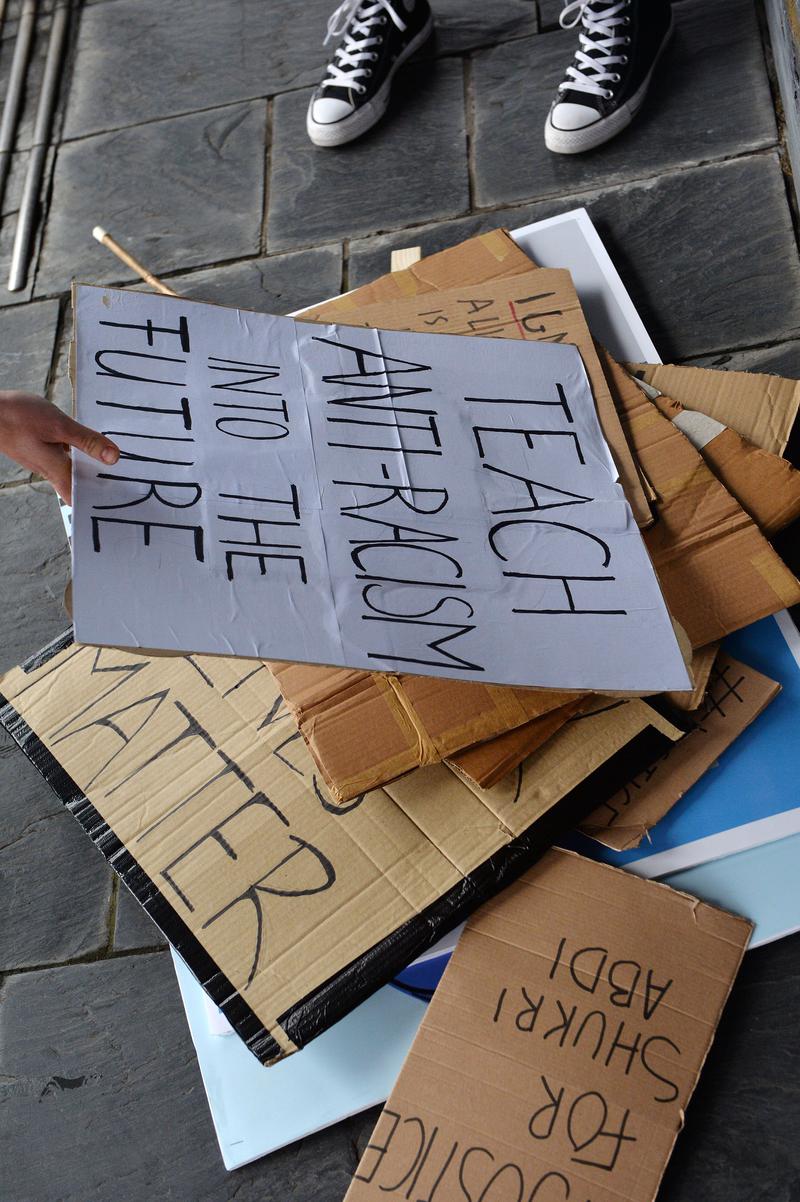 TEACH
ANTI-RACISM
INTO THE
FUTURE
IS
MATTER
JUSTICE
FOR
SHUKRI
ABDI